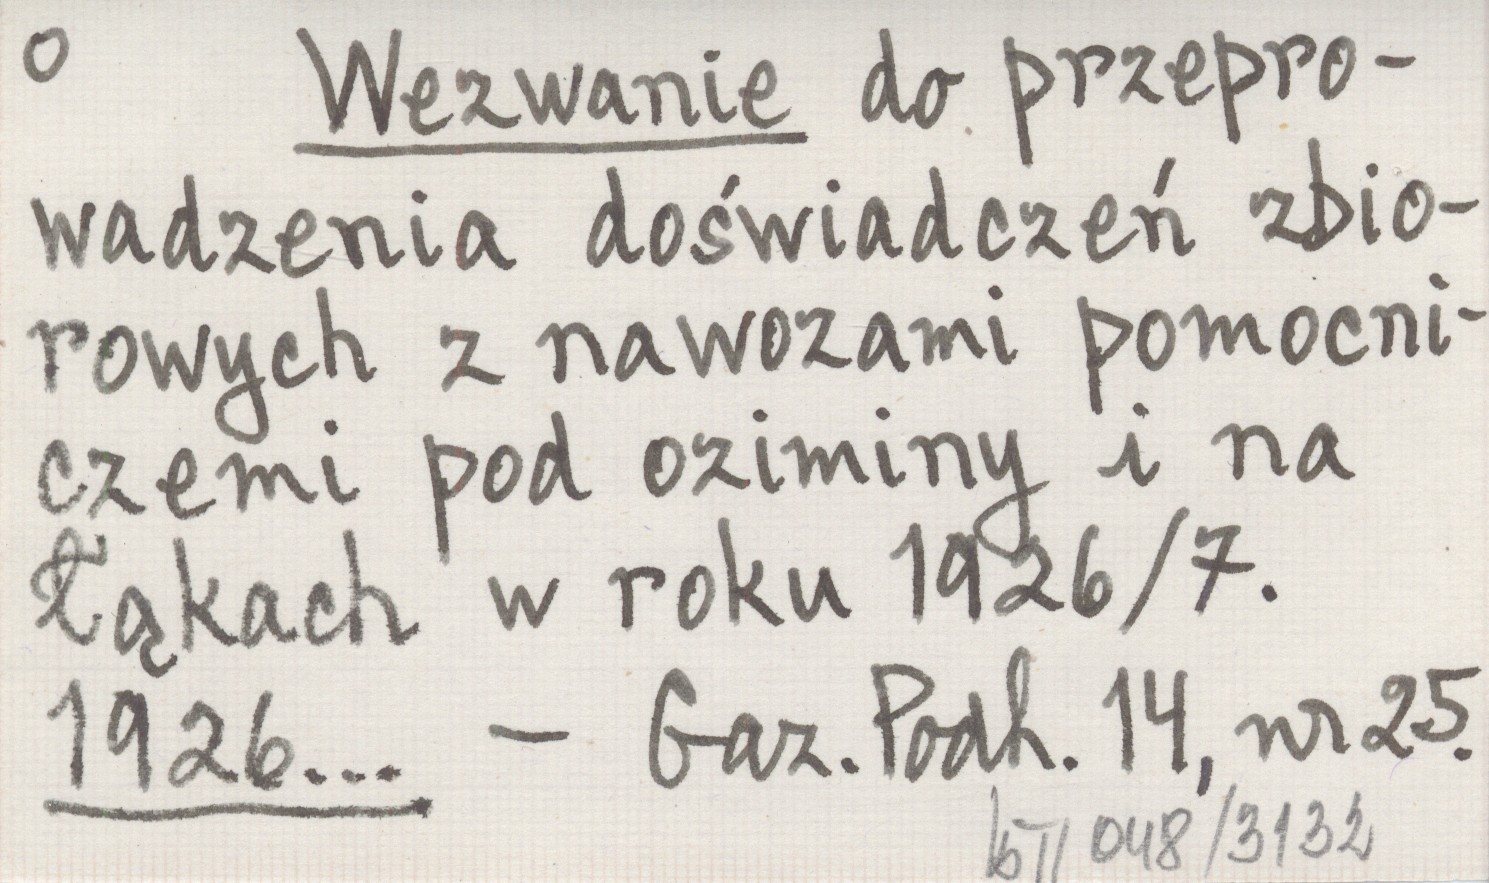 o Wezwanie do przepro-
wadzenia doświadczeń zbio-
rowych z nawozami pomocni-
czemi pod oziminy i na
łąkach w roku 1926/7.
1926... - Gaz. Podh. 14, nr 25.
048/3132